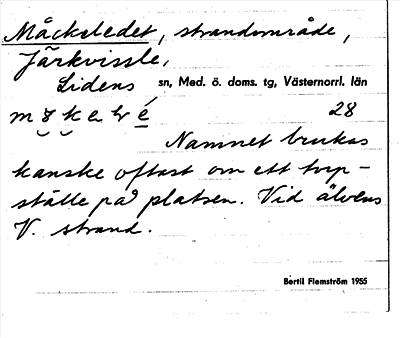 Måckeledet, strandområde,
Järkvissle,
Lidens sn, Med. ö. doms. tg, Västernorrl. län
28
Namnet brukas
kanske oftast om ett torp-
ställe på platsen. Vid älvens
V. strand.
Bertil Flemström 1955